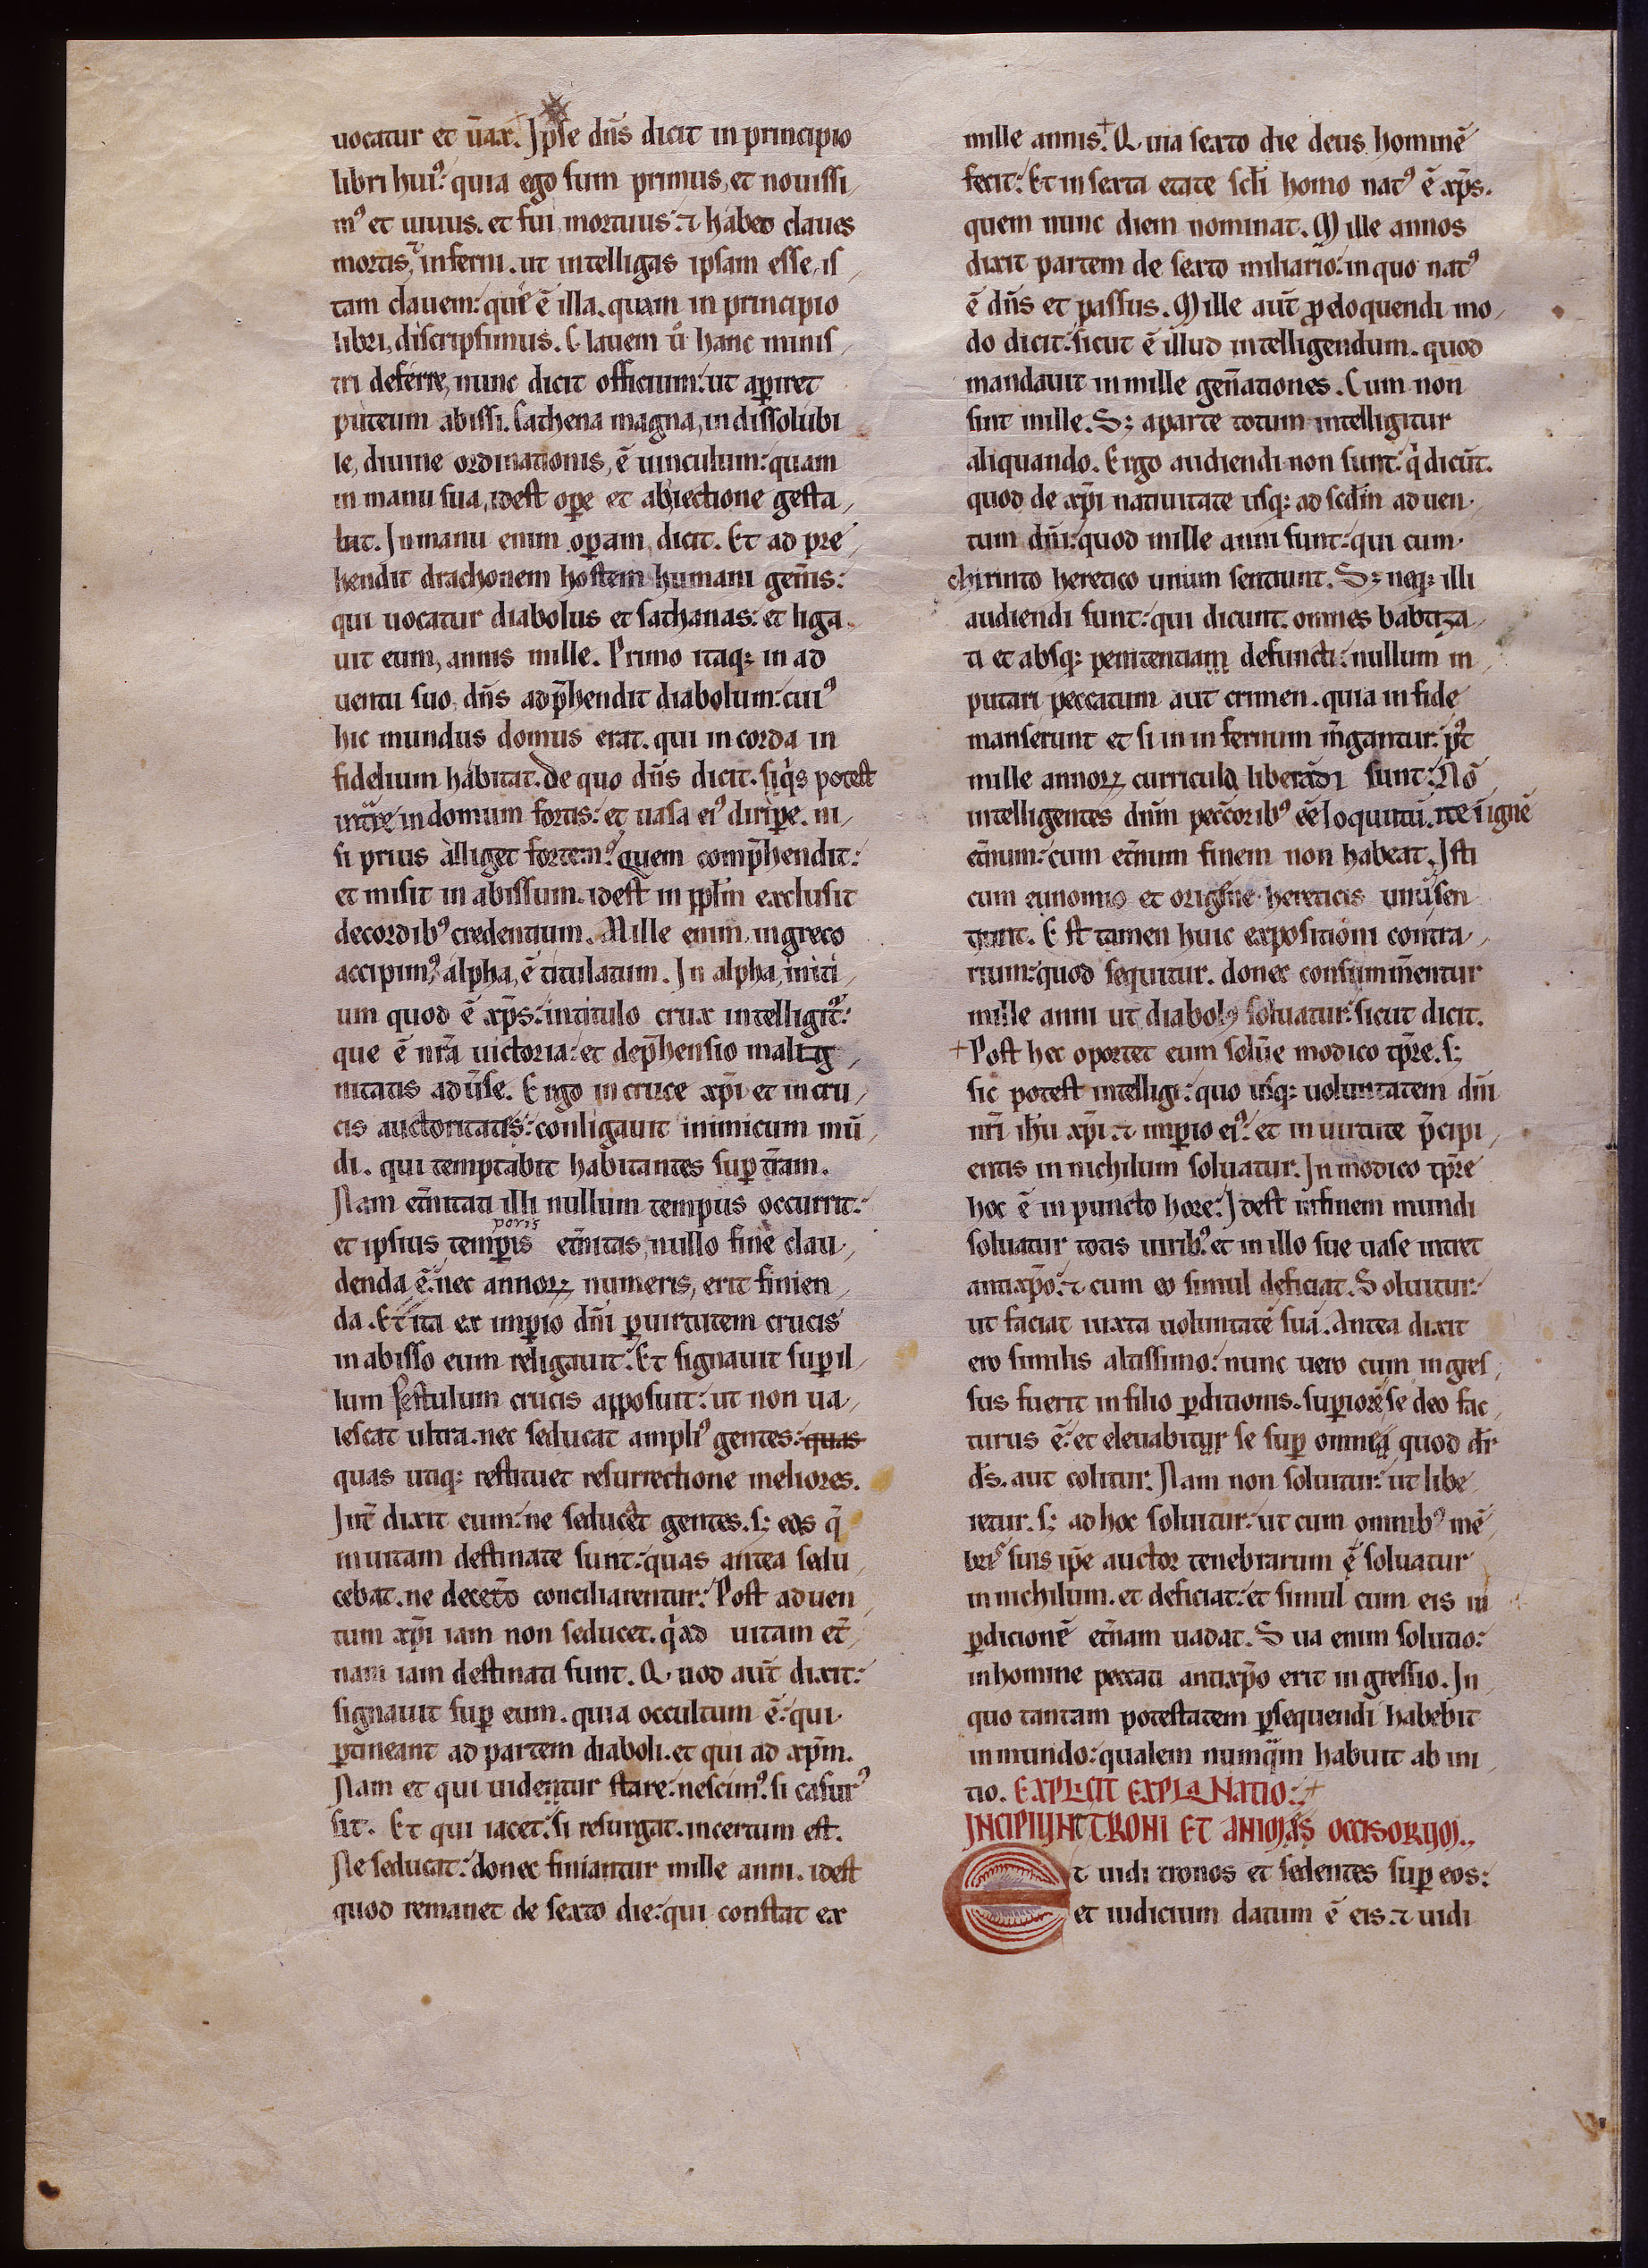 uocatur et ũax. Ipse dñs dicit in principio
libri huiꝰ: quia ego sum primus, et nouissi
mꝰ et uiuus. et fui mortuus: ⁊ habeo claues
mortis, ⁊ inferni. ut intelligas ipsam esse, is
tam clauem: que ẽ illa. quam in principio
libri, discripsimus. Clauem ů hanc minis
tri deferre, nunc dicit officium: ut aꝑiret
puteum abissi. Cathena magna, indissolubi
le, diuine ordinationis, ẽ uinculum: quam
in manu sua, idest oꝑe et abiectione gesta
bat. In manu enim oꝑam, dicit. Et ad pre
hendit drachonem hostem humani geñis:
qui uocatur diabolus et sathanas: et liga
uit eum, annis mille. Primo itaq; in ad
uentu suo, dñs adp̃hendit diabolum: cuiꝰ
hic mundus domus erat. qui in corda in
fidelium habitat. De quo dñs dicit. siq̇s potest
intᷓre in domum fortis: et uasa eiꝰ diriꝑe. ni
si prius alliget fortem? quem comp̃hendit:
et misit in abissum. idest in pp̃lm exclusit
decordibꝰ credentium. Mille enim, ingreco
accipimꝰ, alpha, ẽ titulatum. In alpha, initi
um quod ẽ xp̃s: intitulo crux intelligit᷑:
que ẽ nr̃a uictoria: et dep̃hensio malig
nitatis adũse. Ergo in cruce xp̃i et in cru
cis auctoritatis: conligauit inimicum mũ
di. qui temptabit habitantes suꝑ t̃ram.
Nam et̃nitati illi nullum tempus occurrit:
poris
et ipsius temꝑis et̃nitas, nullo fine clau
denda ẽ: nec annoꝝ numeris, erit finien
da. Et ita ex imꝑio dñi ꝑuirtutem crucis
in abisso eum religauit. Et signauit suꝑ il
lum sestulum crucis apposuit: ut non ua
lescat ultra. nec seducat ampliꝰ gentes: quas
quas utiq; restituet resurrectione meliores.
Int̃ dixit eum: ne seducẽt gentes. s; eos q̃
in uitam destinate sunt: quas antea sedu
cebat. ne decet̃o conciliarentur: Post aduen
tum xp̃i iam non seducet. q̇ ad uitam et̃
nam iam destinati sunt. Quod aut̃ dixit:
signauit suꝑ eum. quia occultum ẽ: qui
ꝑtineant ad partem diaboli. et qui ad xp̃m.
Nam et qui uidentur stare: nescimꝰ. si casurꝰ
sit. Et qui iacet: si resurgat. incertum est.
Ne seducat: donec finiantur mille anni. idest
quod remanet de sexto die: qui constat ex
mille annis. Quia sexto die deus hominẽ
fecit: Et in sexta etate scl̃i homo natꝰ ẽ xp̃s.
quem nunc diem nominat. Mille annos
dixit partem de sexto miliario: in quo natꝰ
ẽ dñs et passus. Mille aut̃ ꝓ eloquendi mo
do dicit: sicut ẽ illud intelligendum. quod
mandauit in mille geñationes. Cum non
sint mille. S; aparte totum intelligitur
aliquando. Ergo audiendi non sunt: q̇ dicũt.
quod de xp̃i natiuitate usq; ad scd̃m aduen
tum dñi: quod mille anni sunt: qui cum
chirinto heretico unum sentiunt. S; neq; illi
audiendi sunt: qui dicunt. omnes babtiza
ti et absq; penitentiam defuncti: nullum in
putari peccatum aut crimen. quia in fide
manserunt et si in infernum m̃gantur. pꝰt
mille annoꝝ curricula liberãdi sunt: Nõ
intelligentes dñm pecc̃oribꝰ eẽ loquutũ. ite ĩ ignẽ
et̃num: cum et̃num finem non habeat. Isti
cum eunomio et origine hereticis unũ sen
tiunt. Est tamen huic expositioni contra
rium: quod sequitur. donec consummentur
mille anni ut diabolꝰ soluatur: sicut dicit.
Post hec oportet eum solũe modico tp̃re. s;
sic potest intelligi: quo usq; uoluntatem dñi
nr̃i ih̃u xp̃i. ⁊ imꝑio eiꝰ: et in uirtute p̃cipi
entis in nichilum soluatur. In modico tp̃re
hoc ẽ in puncto hore: Idest in finem mundi
soluatur totis uiribꝰ et in illo sue uase intret
antixp̃o: ⁊ cum eo simul deficiat. Soluitur:
ut faciat iuxta uoluntatẽ suã. Antea dixit
ero similis altissimo: nunc uero cum ingres
sus fuerit in filio ꝑditionis. suꝑiorẽ se deo fac
turus ẽ: et eleuabitur se suꝑ omnea quod dr̃
ds̃. aut colitur. Nam non soluitur: ut libe
retur. s; ad hoc soluitur: ut cum omnibꝰ mẽ
bris suis ip̃e auctor tenebrarum ẽ soluatur
in nichilum. et deficiat: et simul cum eis in
ꝑdicionẽ et̃nam uadat. Sua enim solutio:
in homine peccati antixp̃o erit ingressio. In
quo tantam potestatem ꝑsequendi habebit
in mundo: qualem numqᷓm habuit ab ini
tio. EXPLICIT EXPLANATIO:
INCIPIUNT TRONI ET ANIMAS OCCISORUM.
Et uidi tronos et sedentes suꝑ eos:
et iudicium datum ẽ eis. ⁊ uidi